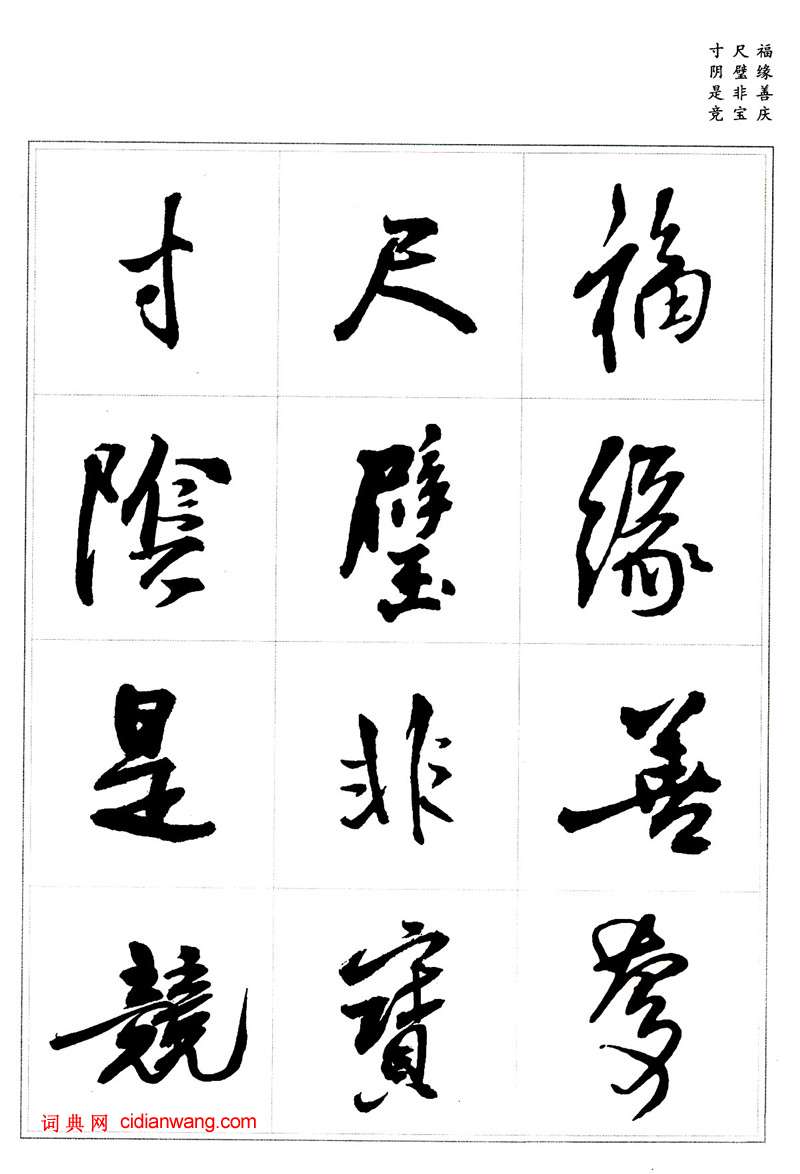 福缘善庆
尺璧非宝
寸阴是竞
福緣善慶
尺璧非寶
寸陰是競
词典网 cidianwang.com